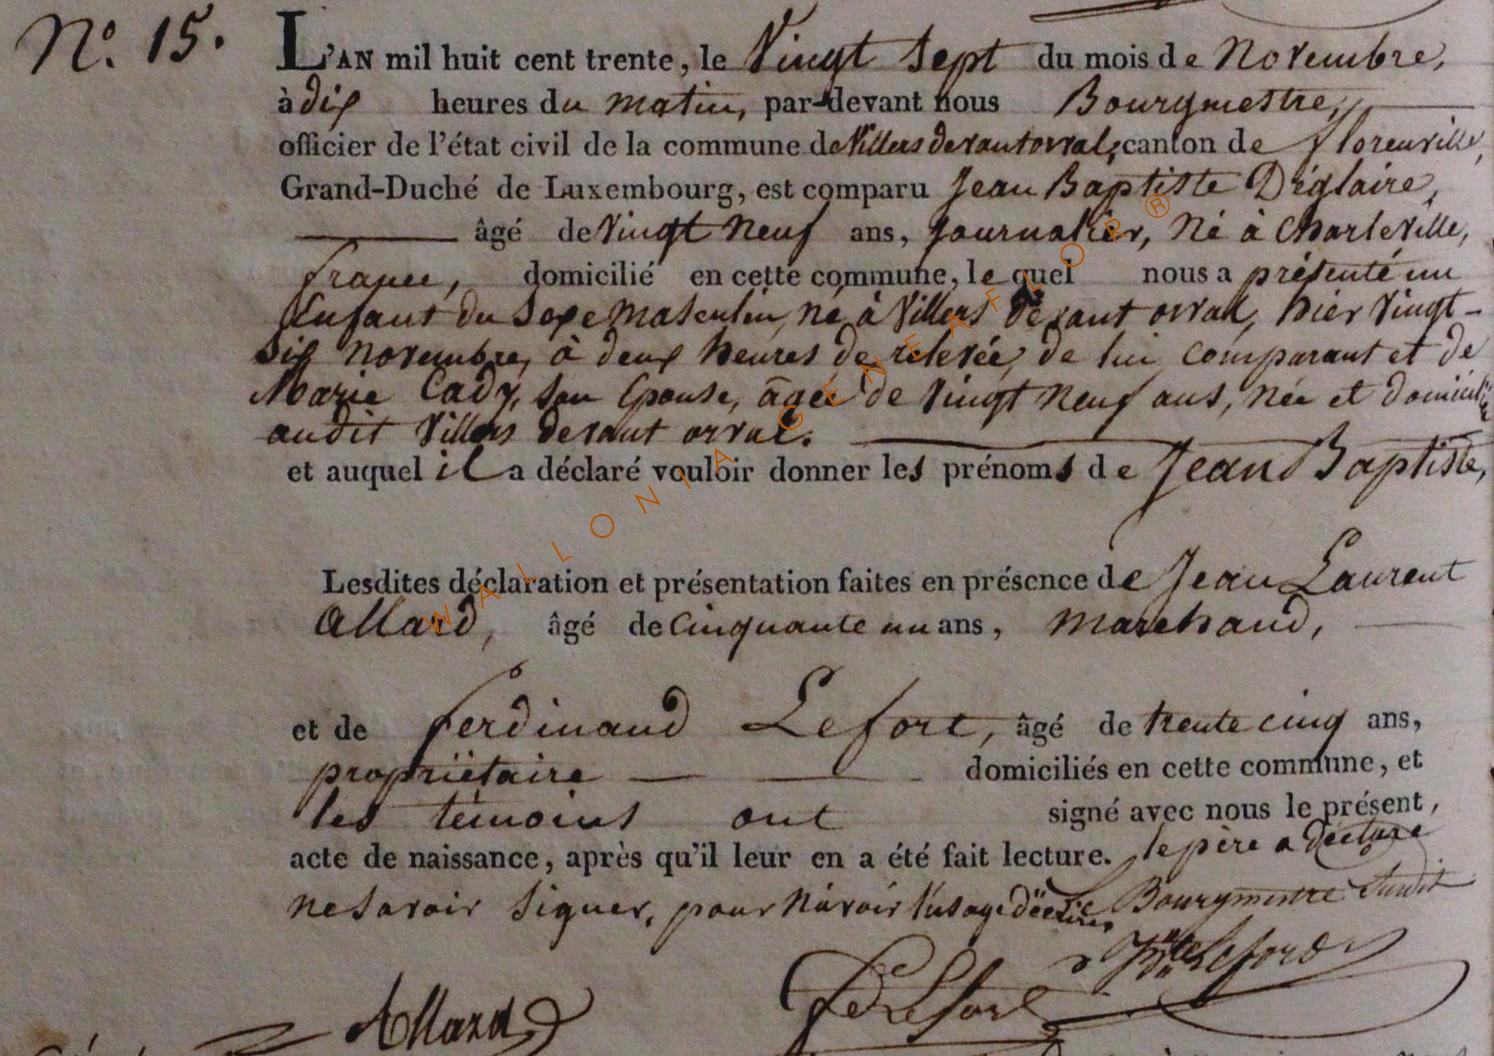 N.º 15.
L'AN mil huit cent trente, le Vingt Sept du mois de Novembre,
à dix heures du matin, par-devant nous Bourgmestre,
officier de l'état civil de la commune de Villers devant orval, canton de florenville,
Grand-Duché de Luxembourg, est comparu Jean Baptiste Déglaire,
âgé de Vingt Neuf ans, Journalier, Né à Charleville,
france, domicilié en cette commune, le quel nous a présenté un
Enfant du Sexe Masculin, né à Villers devant orval, hier Vingt-
Six Novembre, à deux heures de relevée, de lui comparant et de
Marie Cady, son Epouse, âgée de Vingt Neuf ans, Née et domiciliée
audit Villers devant orval.
et auquel il a déclaré vouloir donner les prénoms de Jean Baptiste,
Lesdites déclaration et présentation faites en présence de Jean Laurent
Allard, âgé de Cinquante un ans, Marchand,
et de ferdinand Lefort, âgé de trente cinq ans,
propriétaire domiciliés en cette commune, et
les témoins ont signé avec nous le présent,
acte de naissance, après qu'il leur en a été fait lecture. le père a déclaré
ne Savoir Signer, pour N'avoir l'usage d'écrire, Le Bourgmestre Susdit
Lefort
Allard fd Lefort
WALLONIA GENEAFLOR®